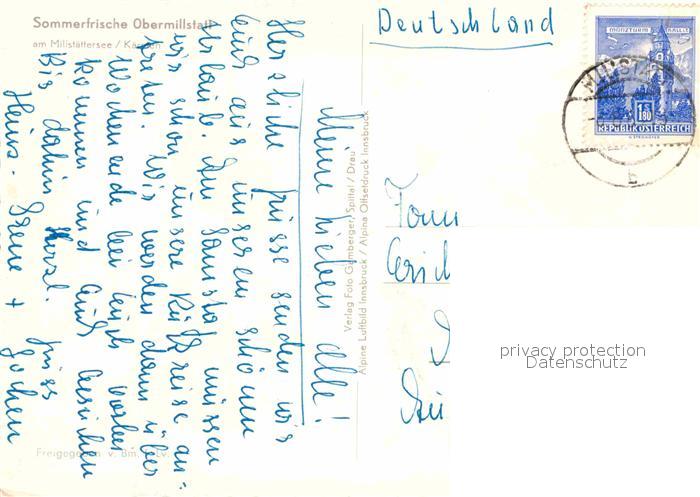 Sommerfrische Obermillstatt
am Millstättersee / Kärnten
Deutschland
MÜNZTURM HALL I. T.
1.80
REPUBLIK ÖSTERREICH
Meine lieben alle!
Herzliche Grüsse senden wir
Euch aus unserem schönen
Urlaub. Am Samstag müssen
wir schon unsere Rückreise an-
treten. Wir werden dann über
Wochenende bei Euch vorbei
kommen und Euch besuchen
Bis dahin herzl. Grüss
Heinz - Irene + Jochen
Verlag Foto Gemberger, Spittal / Drau
Alpine Luftbild Innsbruck / Alpina Offsetdruck Innsbruck
Fam
privacy protection
Datenschutz
Freigegeben v. Bm. f. Lv.